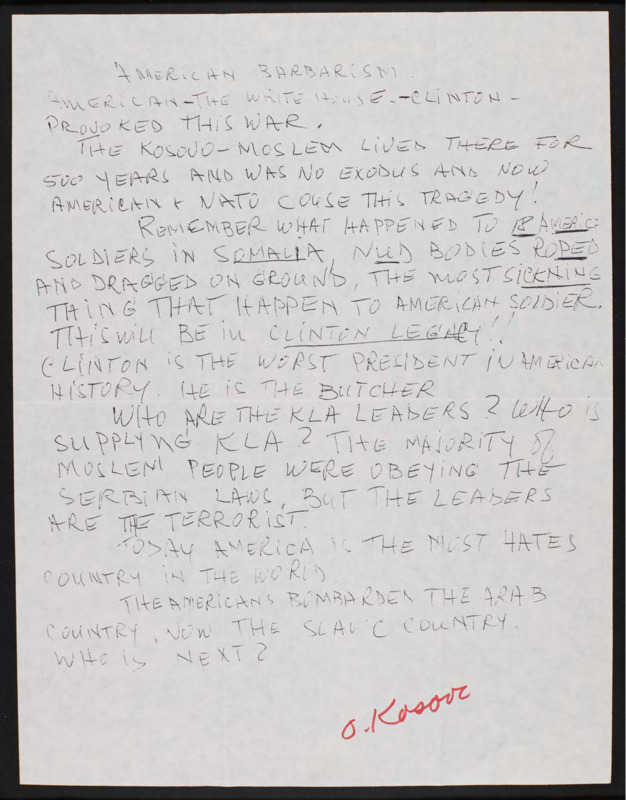 AMERICAN BARBARISM.
AMERICAN-THE WHITE HOUSE.-CLINTON-
PROVOKED THIS WAR.
THE KOSOVO-MOSLEM LIVED THERE FOR
500 YEARS AND WAS NO EXODUS AND NOW
AMERICAN + NATO COUSE THIS TRAGEDY!
REMEMBER WHAT HAPPENED TO 18 AMERIC:
SOLDIERS IN SOMALIA, NUD BODIES ROPED
AND DRAGGED ON GROUND, THE MOST SICKNING
THING THAT HAPPEN TO AMERICAN SOLDIER.
THIS WILL BE IN CLINTON LEGACY!!
CLINTON IS THE WORST PRESIDENT IN AMERICAN
HISTORY. HE IS THE BUTCHER
WHO ARE THE KLA LEADERS? WHO IS
SUPPLYING KLA? THE MAJORITY OF
MOSLEM PEOPLE WERE OBEYING THE
SERBIAN LAWS, BUT THE LEADERS
ARE THE TERRORIST.
TODAY AMERICA IS THE MOST HATES
COUNTRY IN THE WORLD.
THE AMERICANS BOMBARDED THE ARAB
COUNTRY, NOW THE SLAVIC COUNTRY.
WHO IS NEXT?
O. Kosovo